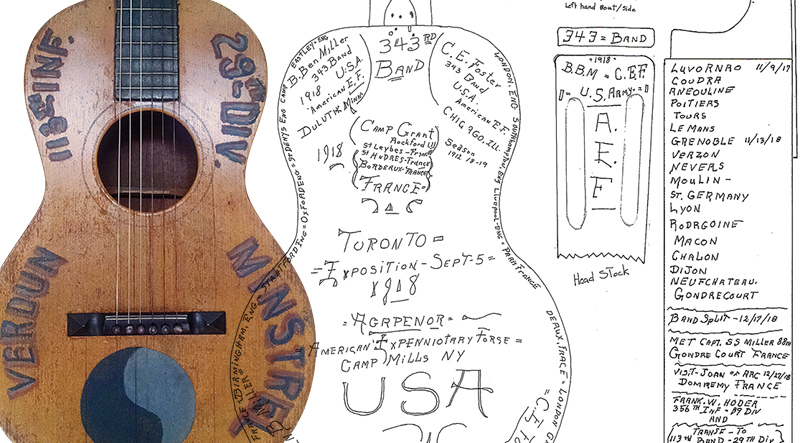 113th INF.
29th DIV.
VERDUN
MINSTREL
Left hand Bout/side
343 RD
BAND
B. Ben Miller
343 Band
1918 U.S.A.
American E.F.
DULUTH Minn
C.E. Foster
343 Band
U.S.A.
American E.F.
CHICAGO. ILL.
Season
1918-19
CAMP Grant
Rockford Ill
St Leybes-France
St HUDRES-France
BORDEUX-FRANCE
1918
FRANCE=
TORONTO =
=EXPOSITION-SEPT-5=
1918
=AGAPENOR=
=AMERICAN EXPENNIOTARY FORSE=
CAMP MILLS NY
USA
LONDON. ENG SOUTHAMPTON. ENG LIVERPOOL-ENG = PARIS FRANCE
DEAUX. FRACE = LONDON
C.E. FO
EASTLEY=ENG CAMP
ST DENYS ENG
OXFORD ENG =
STRETFORD ENG =
BIRMINGHAM. ENG
FRANCE
MILLER
343= BAND
-1918-
B.B.M = C.E.F
= U.S. ARMY.=
A.
E.
F
Head Stock
LUVORNAO 11/9/17
COUDRA
ANEOULINE
POITIERS
TOURS
LE MANS
GRENOBLE 11/13/18
VERZON
NEVERS
MOULIN -
ST. GERMANY
LYON
RODRGOINE
MACON
CHALON
DIJON
NEUFCHATEAU.
GONDRECOURT
BAND SPLIT -12/17/18
MET CAPT. SS MILLER 88th
GONDRE COURT FRANCE
VISIT- JOAN OF ARC 12/22/18
DOMREMY FRANCE
FRANK. W. HODER
356th INF = 89 DIV
AND
TRANSF - TO
113th BAND - 29TH DIV